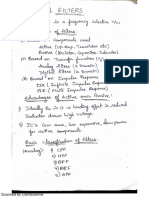 FILTERS
is a frequency selective n/w
of filters:
Components used
Active (Op-Amp, Transistor etc)
Passive (Resistor, Capacitor, Inductor)
(2) Based on Transfer function
Analog filters (s domain)
Digital filters (z domain)
(3) Based on Impulse Response
FIR (Finite Impulse Response)
IIR (Infinite Impulse Response)
Advantages of Active over Passive:
1) Ideally the is 0 so loading effect is reduced
Inductor draws high voltage.
2) It's low cost, less expensive, low power
for active components
Basic Classification of filters:
1) LPF
2) HPF
3) BPF
4) BSF
5) APF
Scanned by CamScanner